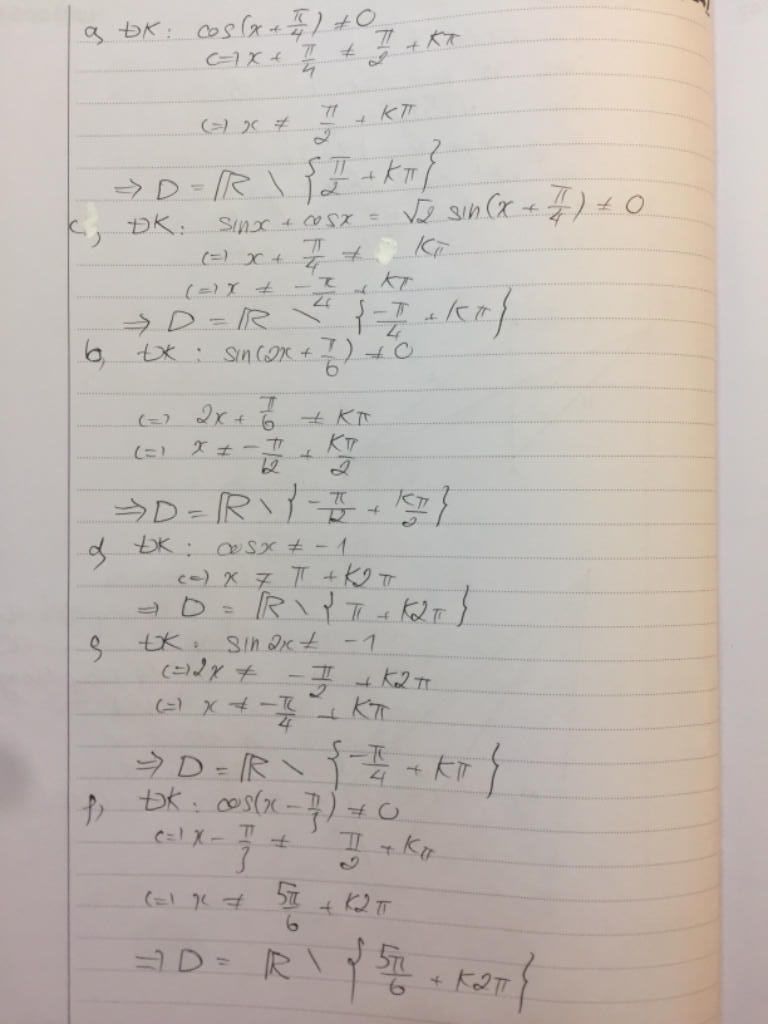 a, ĐK: cos(x + π/4) ≠ 0
<=> x + π/4 ≠ π/2 + Kπ
<=> x ≠ π/2 + Kπ
=> D = ℝ \ {π/2 + Kπ}
c, ĐK: sinx + cosx = √2 sin(x + π/4) ≠ 0
<=> x + π/4 ≠ Kπ
<=> x ≠ -π/4 + Kπ
=> D = ℝ \ {-π/4 + Kπ}
b, ĐK: sin(2x + π/6) ≠ 0
<=> 2x + π/6 ≠ Kπ
<=> x ≠ -π/12 + Kπ/2
=> D = ℝ \ {-π/12 + Kπ/2}
d, ĐK: cosx ≠ -1
<=> x ≠ π + K2π
=> D = ℝ \ {π + K2π}
ĐK: sin2x ≠ -1
<=> 2x ≠ -π/2 + K2π
<=> x ≠ -π/4 + Kπ
=> D = ℝ \ {-π/4 + Kπ}
f, ĐK: cos(x - π/3) ≠ 0
<=> x - π/3 ≠ π/2 + Kπ
<=> x ≠ 5π/6 + K2π
=> D = ℝ \ {5π/6 + K2π}